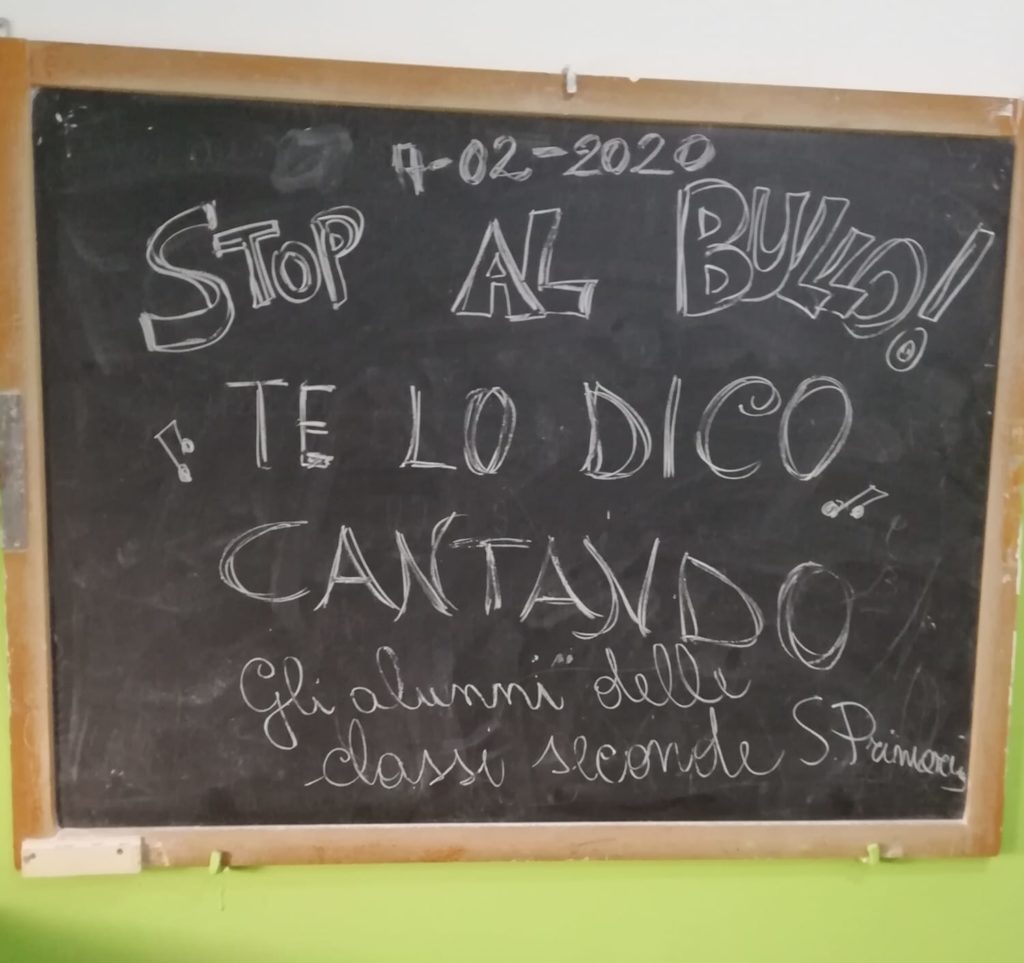 7-02-2020
STOP AL BULLO!
TE LO DICO
CANTANDO
Gli alunni delle
classi seconde S. Primaria